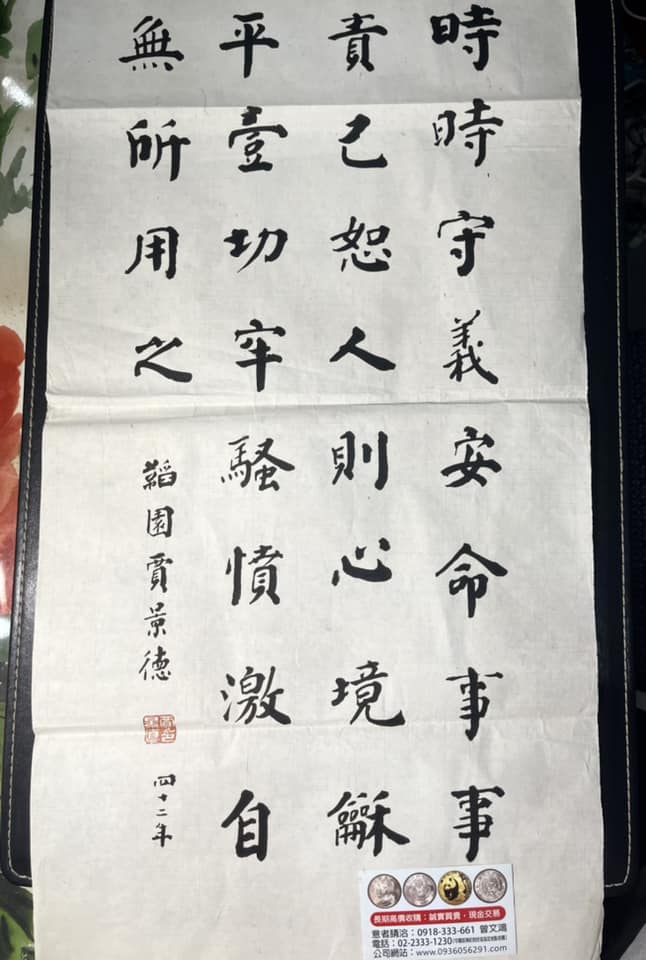 時時守義安命事事
責己恕人則心境龢
平壹切牢騷憤激自
無所用之
韜園賈景德
四十二年
長期高價收購：誠實買賣，現金交易
意者請洽：0918-333-661 曾文鴻
電話：02-2333-1230
公司網站：www.0936056291.com